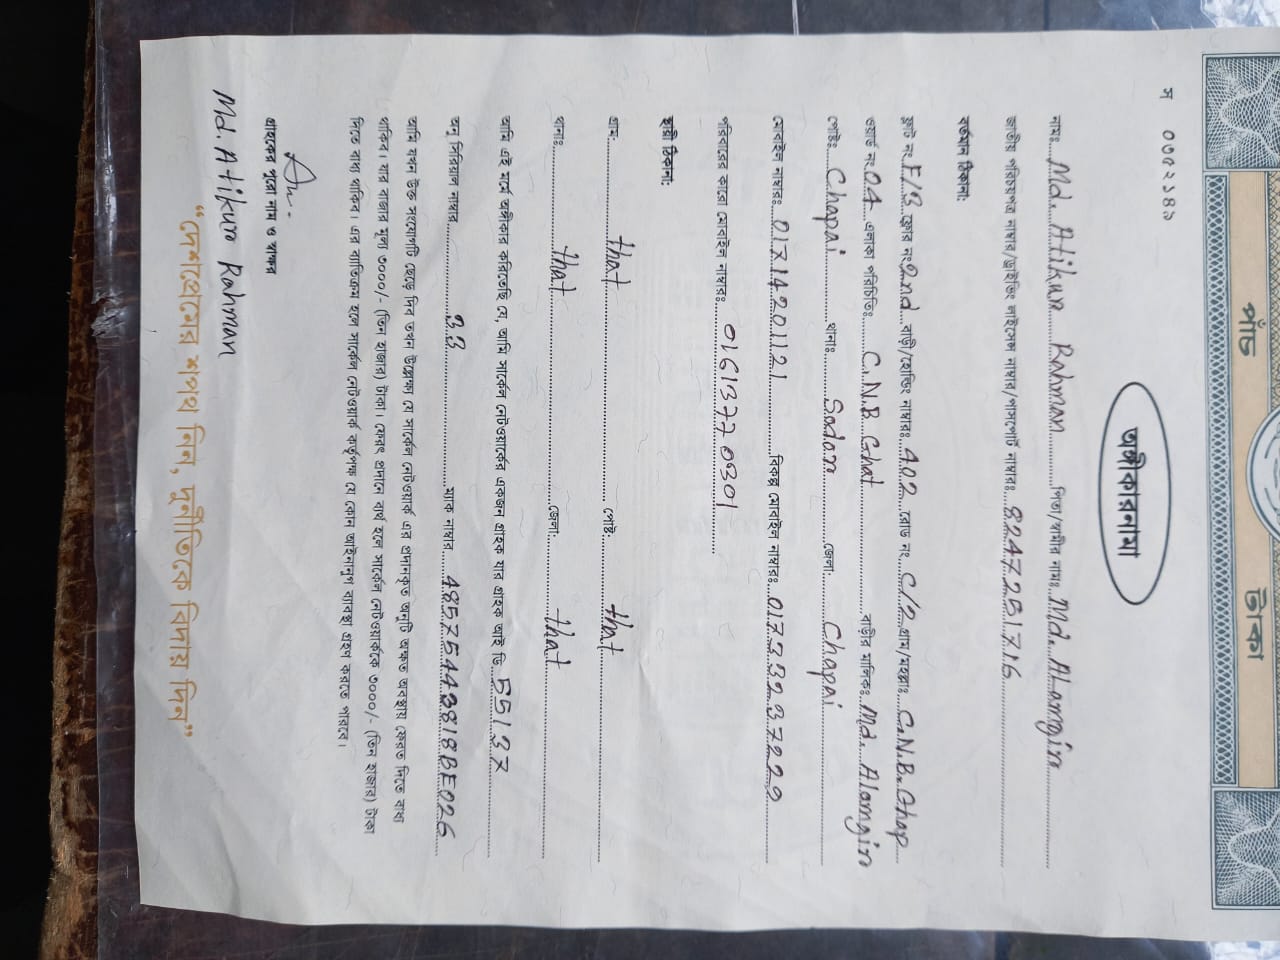 পাঁচ টাকা
স ০৩৫২১৪৯
অঙ্গীকারনামা
নামঃ Md. Atikur Rahman পিতা/স্বামীর নামঃ Md. Alamgir
জাতীয় পরিচয়পত্র নাম্বার/ড্রাইভিং লাইসেন্স নাম্বার/পাসপোর্ট নাম্বারঃ 8247251716
বর্তমান ঠিকানা:
ফ্লাট নং F/B ফ্লোর নং 2nd বাড়ী/হোল্ডিং নাম্বারঃ 402 রোড নং C/2 গ্রাম/মহল্লাঃ C.N.B. Ghap
ওয়ার্ড নং 04 এলাকা পরিচিতিঃ C.N.B Ghat বাড়ীর মালিকঃ Md. Alamgir
পোষ্টঃ Chapai থানাঃ Sadar জেলা: Chapai
মোবাইল নাম্বারঃ 01714201121 বিকল্প মোবাইল নাম্বারঃ 01733237222
পরিবারের কারো মোবাইল নাম্বারঃ 01613770301
স্থায়ী ঠিকানা:
গ্রাম: that পোষ্ট: that
থানাঃ that জেলা: that
আমি এই মর্মে অঙ্গীকার করিতেছি যে, আমি সার্কেল নেটওয়ার্কের একজন গ্রাহক যার গ্রাহক আই ডি 55137
অনু সিরিয়াল নাম্বার 33 ম্যাক নাম্বার 485754438188E026
আমি যখন উক্ত সংযোগটি ছেড়ে দিব তখন উল্লেখ্য যে সার্কেল নেটওয়ার্ক এর প্রদানকৃত অনুটি অক্ষত অবস্থায় ফেরত দিতে বাধ্য
থাকিব। যার বাজার মূল্য ৩০০০/- (তিন হাজার) টাকা। ফেরৎ প্রদানে ব্যর্থ হলে সার্কেল নেটওয়ার্ককে ৩০০০/- (তিন হাজার) টাকা
দিতে বাধ্য থাকিব। এর ব্যতিক্রম হলে সার্কেল নেটওয়ার্ক কর্তৃপক্ষ যে কোন আইনানুগ ব্যবস্থা গ্রহণ করতে পারবে।
গ্রাহকের পুরো নাম ও স্বাক্ষর
Md. Atikur Rahman
“দেশপ্রেমের শপথ নিন, দুর্নীতিকে বিদায় দিন”